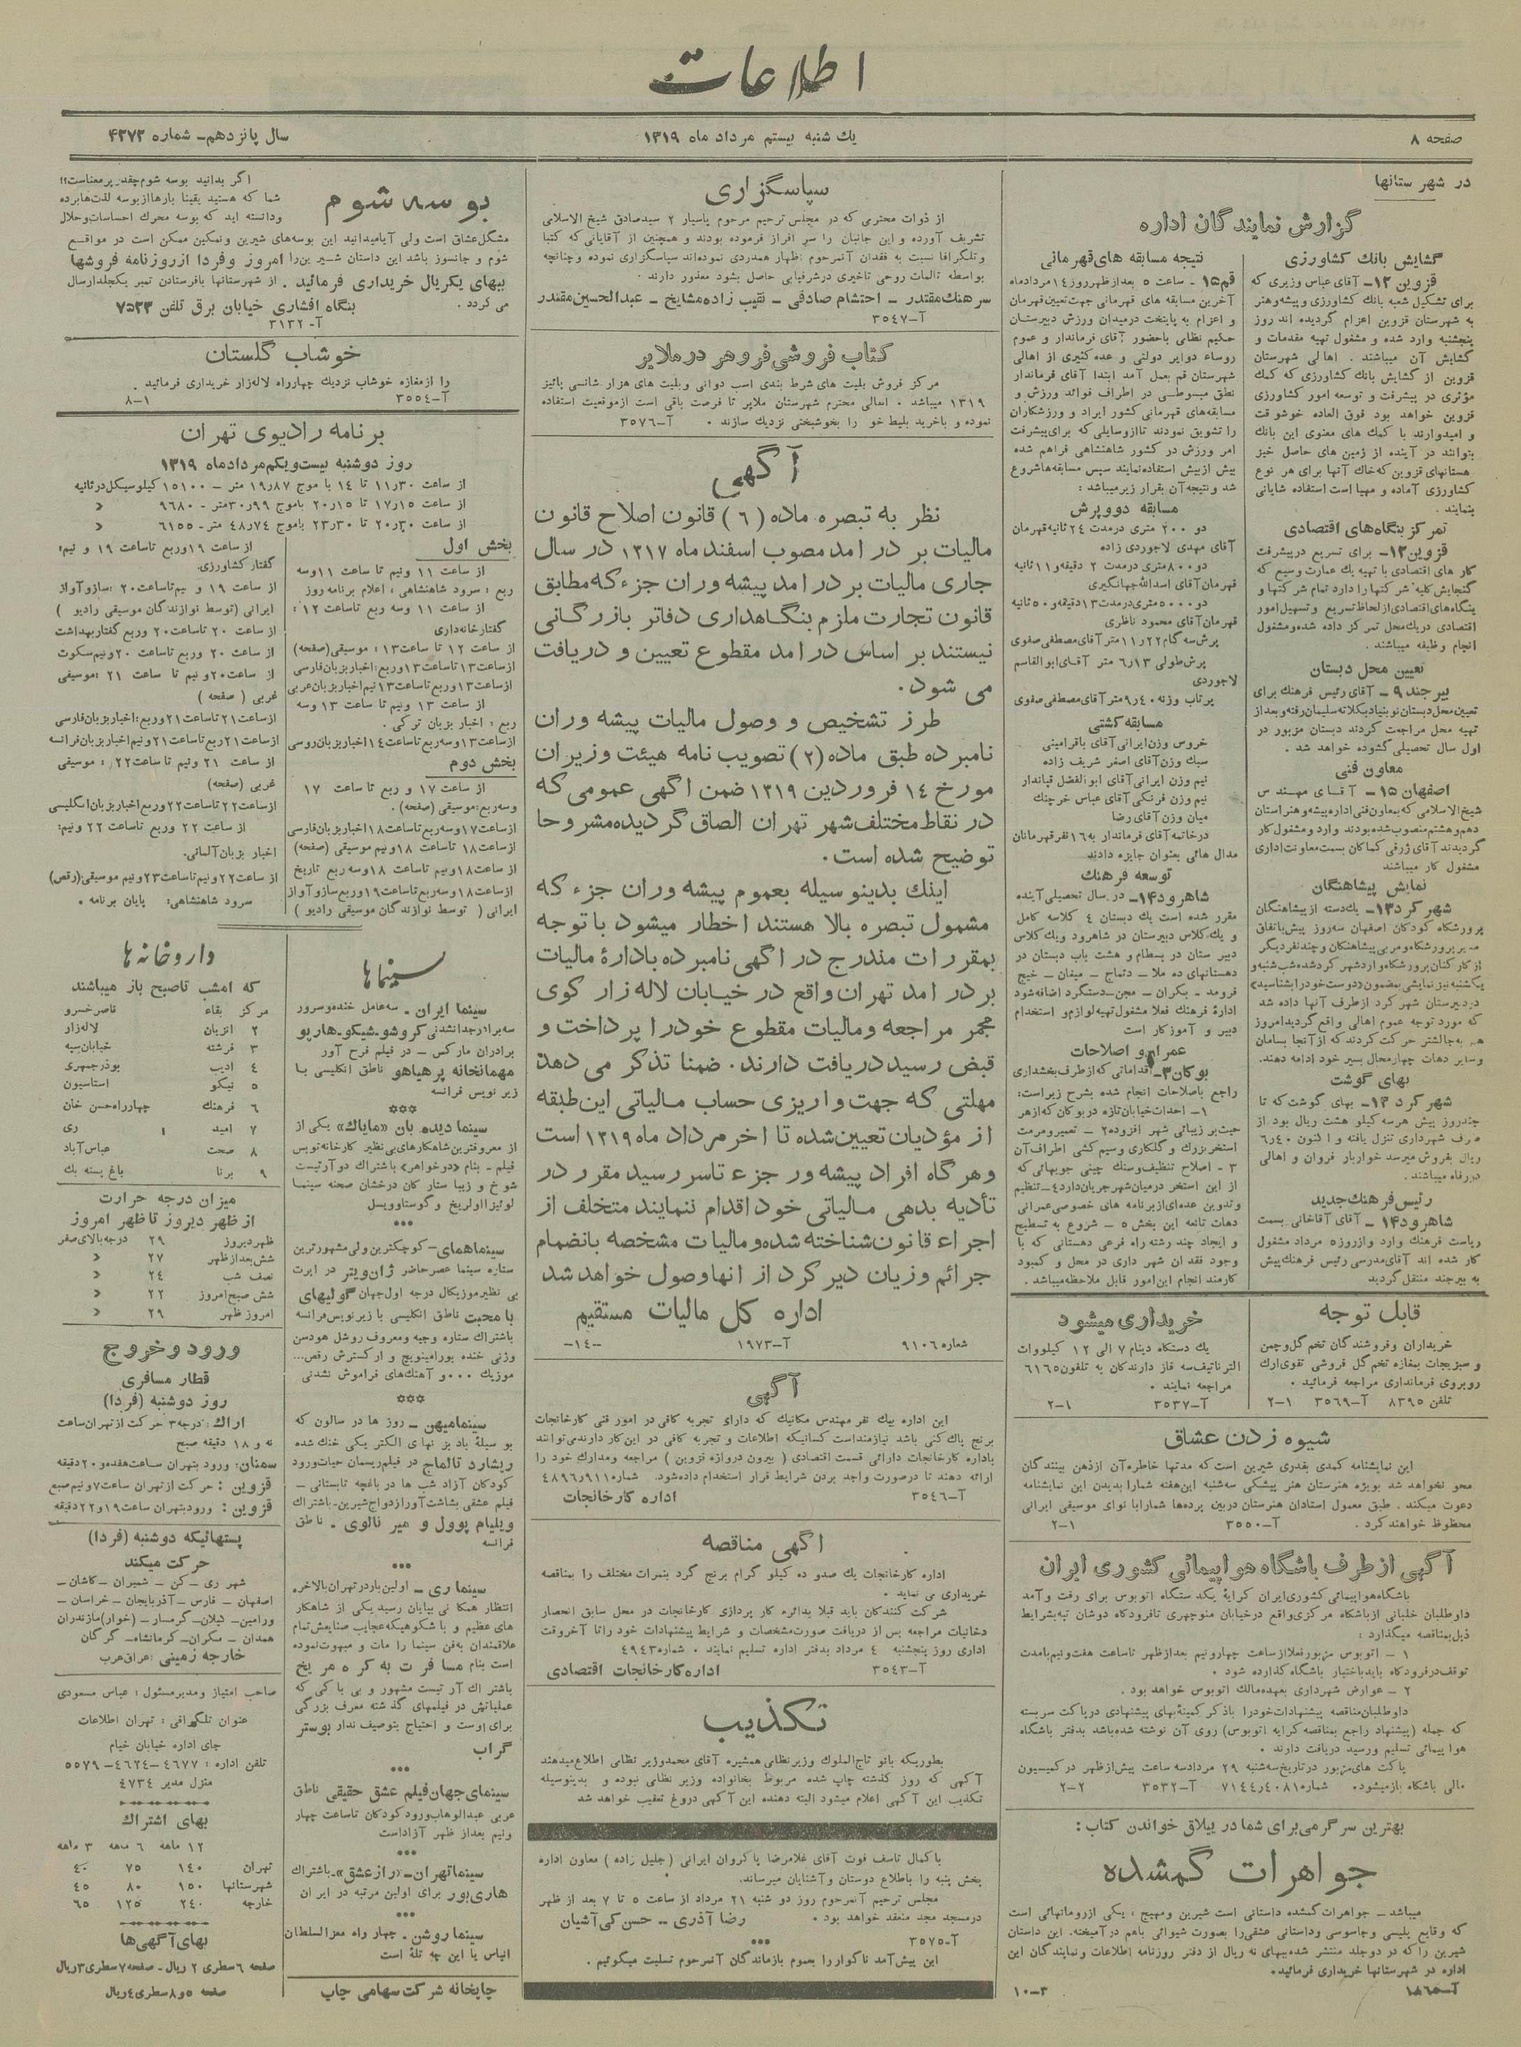 اطلاعات
صفحه ۸
یك شنبه بیستم مرداد ماه ۱۳۱۹
سال پانزدهم- شماره ۴۲۷۲
در شهرستانها
گزارش نمایندگان اداره
گشایش بانك كشاورزی
قزوین ۱۲- آقای عباس وزیری كه
برای تشكیل شعبه بانك كشاورزی و پیشه و هنر
به شهرستان قزوین اعزام گردیده اند روز
پنجشنبه وارد شده و مشغول تهیه مقدمات و
گشایش آن میباشند . اهالی شهرستان
قزوین از گشایش بانك كشاورزی كه كمك
مؤثری در پیشرفت و توسعه امور كشاورزی
قزوین خواهد بود فوق العاده خوشوقت
و امیدوارند با كمك های معنوی این بانك
بتوانند در آینده از زمین های حاصل خیز
كشاورزی آماده و مهیا است استفاده شایانی
بنمایند .
تمركز بنگاه های اقتصادی
قزوین ۱۲- برای تسریع در پیشرفت
كار های اقتصادی با تهیه یك عمارت وسیع كه
اقتصادی در یك محل تمركز داده شده و مشغول
انجام وظیفه میباشند .
تعیین محل دبستان
بیرجند ۹- آقای رئیس فرهنك برای
تهیه محل مراجعت كردند دبستان مزبور در
اول سال تحصیلی گشوده خواهد شد .
معاون فنی
اصفهان ۱۵- آقای مهندس
شیخ الاسلامی كه بمعاون فنی اداره پیشه و هنر استان
دهم و هشتم منصوب شده بودند وارد و مشغول كار
مشغول كار میباشند
نمایش پیشاهنگان
شهر كرد ۱۳- یك دسته از پیشاهنگان
پرورشگاه كودكان اصفهان سه روز پیش باتفاق
در دبیرستان شهر كرد از طرف آنها داده شد
كه مورد توجه عموم اهالی واقع گردید امروز
و سایر دهات چهار محال بسیر خود ادامه دهند .
بهای گوشت
شهر كرد ۱۳- بهای گوشت كه تا
چند روز پیش هر سه كیلو هشت ریال بود از
طرف شهرداری تنزل یافته و اكنون ۶٫۴۰
ریال بفروش میرسد خواربار فروان و اهالی
در رفاه میباشند .
رئیس فرهنك جدید
شاهرود ۱۴- آقای آقاخانی بسمت
ریاست فرهنك وارد و از روز ۵ مرداد مشغول
كار شده اند آقای مدرسی رئیس فرهنك پیش
به بیرجند منتقل گردید
نتیجه مسابقه های قهرمانی
قم ۱۵- ساعت ۵ بعد از ظهر روز ۱۴ مرداد ماه
آخرین مسابقه های قهرمانی جهت تعیین قهرمان
و اعزام به پایتخت در میدان ورزش دبیرستان
حكیم نظامی با حضور آقای فرماندار و عموم
روساء دوایر دولتی و عده كثیری از اهالی
شهرستان قم بعمل آمد ابتدا آقای فرماندار
نطق مبسوطی در اطراف فوائد ورزش و
مسابقه های قهرمانی كشور ایراد و ورزشكاران
را تشویق نمودند تا از وسایلی كه برای پیشرفت
امر ورزش در كشور شاهنشاهی فراهم شده
بیش از بیش استفاده نمایند سپس مسابقه ها شروع
شد و نتیجه آن بقرار زیر میباشد :
مسابقه دو و پرش
دو ۲۰۰ متری در مدت ۲۴ ثانیه قهرمان
آقای مهدی لاجوردی زاده
دو ۸۰۰ متری در مدت ۲ دقیقه و ۱۱ ثانیه
قهرمان آقای اسدالله جهانگیری
قهرمان آقای محمود ناظری
لاجوردی
مسابقه كشتی
خروس وزن ایرانی آقای باقر امینی
سبك وزن آقای اصغر شریف زاده
نیم وزن ایرانی آقای ابوالفضل قپاندار
نیم وزن فرنگی آقای عباس خرچنك
میان وزن آقای رضا
در خاتمه آقای فرماندار به ۱۶ نفر قهرمانان
مدال هائی بعنوان جایزه دادند
توسعه فرهنك
شاهرود ۱۴- در سال تحصیلی آینده
مقرر شده است یك دبستان ۴ كلاسه كامل
و یك كلاس دبیرستان در شاهرود و یك كلاس
دبیر ستان در بسطام و هشت باب دبستان در
اداره فرهنك فعلا مشغول تهیه لوازم و استخدام
دبیر و آموزگار است
عمران و اصلاحات
بوكان ۳- اقداماتی كه از طرف بخشداری
راجع باصلاحات انجام شده بشرح زیر است :
۱- احداث خیابان تازه در بوكان كه از هر
حیث بر زیبائی شهر افزوده ۲- تعمیر و مرمت
استخر بزرك و گلكاری وسیم كشی اطراف آن
۳- اصلاح تنظیف و سنك چینی جویهائی كه
از این استخر در میان شهر جریان دارد ۴- تنظیم
و تدوین عده ای از برنامه های خصوصی عمرانی
دهات تابعه این بخش ۵- شروع به تسطیح
و ایجاد چند رشته راه فرعی دهستانی كه با
وجود فقدان شهر داری در محل و كمبود
كارمند انجام این امور قابل ملاحظه میباشد .
قابل توجه
خریداران و فروشندگان تخم گل و چمن
و سبزیجات بمغازه تخم گل فروشی تقوی ارك
روبروی فرمانداری مراجعه فرمائید .
تلفن ۸۳۹۵ آ-۳۵۶۹ ۲-۱
خریداری میشود
یك دستگاه دینام ۷ الی ۱۲ كیلووات
الترناتیف سه فاز دارندگان به تلفون ۶۱۶۵
مراجعه نمایند .
آ-۳۵۳۷ ۲-۱
شیوه زدن عشاق
این نمایشنامه كمدی بقدری شیرین است كه مدتها خاطره آن از ذهن بینندگان
محو نخواهد شد بویژه هنرستان هنر پیشگی سه شنبه این هفته شما را بدیدن این نمایشنامه
دعوت میكند . طبق معمول استادان هنرستان در بین پرده ها شما را با نوای موسیقی ایرانی
محظوظ خواهند كرد . آ-۳۵۵۰ ۲-۱
آگهی از طرف باشگاه هواپیمائی كشوری ایران
باشگاه هواپیمائی كشوری ایران كرایه یكدستگاه اتوبوس برای رفت و آمد
داوطلبان خلبانی از باشگاه مركزی واقع در خیابان منوچهری تا فرودگاه دوشان تپه بشرایط
ذیل بمناقصه میگذارد :
۱- اتوبوس مزبور فعلا از ساعت چهار و نیم بعد از ظهر تا ساعت هفت و نیم بامدت
توقف در فرودگاه باید باختیار باشگاه گذارده شود .
۲- عوارض شهرداری بعهده مالك اتوبوس خواهد بود .
داوطلبان مناقصه پیشنهادات خود را با ذكر كمینه بهای پیشنهادی در پاكت سربسته
كه جمله (پیشنهاد راجع بمناقصه كرایه اتوبوس) روی آن نوشته شده باشد بدفتر باشگاه
هواپیمائی تسلیم و رسید دریافت دارند .
پاكت های مزبور در تاریخ سه شنبه ۲۹ مرداد سه ساعت پیش از ظهر در كمیسیون
مالی باشگاه باز میشود . شماره ۷۱۴۴٫۴۰۸۱ آ-۳۵۳۲ ۲-۲
بهترین سرگرمی برای شما در ییلاق خواندن كتاب :
جواهرات گمشده
میباشد - جواهرات گمشده داستانی است شیرین و مهیج : یكی از رومانهائی است
كه وقایع پلیسی و جاسوسی و داستانی عشقی را بصورت شیوائی باهم در آمیخته . این داستان
شیرین را كه در دو جلد منتشر شده ببهای نه ریال از دفتر روزنامه اطلاعات و نمایندگان این
اداره در شهرستانها خریداری فرمائید .
۱۰-۳
سپاسگزاری
از ذوات محترمی كه در مجلس ترحیم مرحوم پاسیار ۲ سید صادق شیخ الاسلامی
تشریف آورده و این جانبان را سر افراز فرموده بودند و همچنین از آقایانی كه كتبا
و تلگرافا نسبت به فقدان آنمرحوم اظهار همدردی نموده اند سپاسگزاری نموده و چنانچه
بواسطه تالمات روحی تاخیری در شرفیابی حاصل بشود معذور دارند .
سرهنك مقتدر - احتشام صادقی - نقیب زاده مشایخ - عبدالحسین مقتدر
آ-۳۵۴۷
كتاب فروشی فروهر در ملایر
مركز فروش بلیت های شرط بندی اسب دوانی و بلیت های هزار شانسی پائیز
۱۳۱۹ میباشد . اهالی محترم شهرستان ملایر تا فرصت باقی است از موقعیت استفاده
نموده و با خرید بلیط خود را بخوشبختی نزدیك سازند . آ-۳۵۷۶
آگهی
نظر به تبصره ماده (۶) قانون اصلاح قانون
مالیات بر درامد مصوب اسفند ماه ۱۳۱۷ در سال
جاری مالیات بر درامد پیشه وران جزء كه مطابق
قانون تجارت ملزم بنگاهداری دفاتر بازرگانی
نیستند بر اساس درامد مقطوع تعیین و دریافت
می شود .
طرز تشخیص و وصول مالیات پیشه وران
نامبرده طبق ماده (۲) تصویب نامه هیئت وزیران
مورخ ۱۴ فروردین ۱۳۱۹ ضمن آگهی عمومی كه
در نقاط مختلف شهر تهران الصاق گردیده مشروحا
توضیح شده است .
اینك بدینوسیله بعموم پیشه وران جزء كه
مشمول تبصره بالا هستند اخطار میشود با توجه
بمقررات مندرج در آگهی نامبرده باداره مالیات
بر درامد تهران واقع در خیابان لاله زار كوی
مجمر مراجعه و مالیات مقطوع خود را پرداخت و
قبض رسید دریافت دارند . ضمنا تذكر می دهد
مهلتی كه جهت واریزی حساب مالیاتی این طبقه
از مؤدیان تعیین شده تا اخر مرداد ماه ۱۳۱۹ است
و هر گاه افراد پیشه ور جزء تا سر رسید مقرر در
تأدیه بدهی مالیاتی خود اقدام ننمایند متخلف از
اجراء قانون شناخته شده و مالیات مشخصه بانضمام
جرائم و زیان دیركرد از انها وصول خواهد شد
اداره كل مالیات مستقیم
شماره ۹۱۰۶ آ-۱۹۷۳ -۱۴-
آگهی
این اداره بیك نفر مهندس مكانیك كه دارای تجربه كافی در امور فنی كارخانجات
برنج پاك كنی باشد نیازمند است كسانیكه اطلاعات و تجربه كافی در این كار دارند می توانند
باداره كارخانجات دارائی قسمت اقتصادی ( بیرون دروازه قزوین ) مراجعه و مدارك خود را
ارائه دهند تا در صورت واجد بودن شرایط قرار استخدام داده شود . شماره ۹۱۱۱٫۴۸۹۶
آ-۳۵۴۶ اداره كارخانجات
اگهی مناقصه
اداره كارخانجات یك صد و ده كیلو گرام برنج گرد بنمرات مختلف را بمناقصه
خریداری می نماید .
شركت كنندگان باید قبلا بدائره كار پردازی كارخانجات در محل سابق انحصار
دخانیات مراجعه پس از دریافت صورت مشخصات و شرایط پیشنهادات خود را تا آخر وقت
اداری روز پنجشنبه ۲۴ مرداد بدفتر اداره تسلیم نمایند . شماره ۴۹۴۳
آ-۳۵۴۳ اداره كارخانجات اقتصادی
تكذیب
بطوریكه بانو تاج الملوك وزیر نظامی همشیره آقای محمد وزیر نظامی اطلاع میدهند
آگهی كه روز گذشته چاپ شده مربوط بخانواده وزیر نظامی نبوده و بدینوسیله
تكذیب این آگهی اعلام میشود البته دهنده این آگهی دروغ تعقیب خواهد شد
با كمال تاسف فوت آقای غلامرضا پاكروان ایرانی ( جلیل زاده ) معاون اداره
پخش پنبه را باطلاع دوستان و آشنایان میرساند .
مجلس ترحیم آنمرحوم روز دو شنبه ۲۱ مرداد از ساعت ۵ تا ۷ بعد از ظهر
در مسجد مجد منعقد خواهد بود . رضا آذری - حسن كی آشیان
آ-۳۵۷۵
این پیش آمد ناگوار را بعموم بازماندگان آنمرحوم تسلیت میگوئیم .
بوسه شوم
اگر بدانید بوسه شوم چقدر پر معناست !!
شما كه هستید یقینا بارها از بوسه لذت ها برده
و دانسته اید كه بوسه محرك احساسات و حلال
مشگل عشاق است ولی آیا میدانید این بوسه های شیرین و نمكین ممكن است در مواقع
شوم و جانسوز باشد این داستان شیرین را امروز و فردا از روزنامه فروشها
ببهای یكریال خریداری فرمائید . از شهرستانها با فرستادن تمبر یكجلد ارسال
می گردد . بنگاه افشاری خیابان برق تلفن ۷۵۲۳
آ-۳۱۳۲
خوشاب گلستان
را از مغازه خوشاب نزدیك چهارراه لاله زار خریداری فرمائید .
آ-۳۵۵۴ ۸-۱
برنامه رادیوی تهران
روز دوشنبه بیست و یكم مرداد ماه ۱۳۱۹
از ساعت ۱۱٫۳۰ تا ۱۴ با موج ۱۹٫۸۷ متر - ۱۵۱۰۰ كیلوسیكل در ثانیه
از ساعت ۱۷٫۱۵ تا ۲۰٫۱۵ باموج ۳۰٫۹۹ متر - ۹۶۸۰ «
از ساعت ۲۰٫۳۰ تا ۲۳٫۳۰ باموج ۴۸٫۷۴ متر - ۶۱۵۵ «
بخش اول
از ساعت ۱۱ و نیم تا ساعت ۱۱ و سه
ربع : سرود شاهنشاهی ؛ اعلام برنامه روز
از ساعت ۱۱ و سه ربع تا ساعت ۱۲ :
گفتار خانه داری
از ساعت ۱۲ تا ساعت ۱۳ : موسیقی (صفحه)
از ساعت ۱۳ تا ساعت ۱۳ و ربع : اخبار بزبان فارسی
از ساعت ۱۳ و ربع تا ساعت ۱۳ نیم اخبار بزبان عربی
از ساعت ۱۳ و نیم تا ساعت ۱۳ و سه
ربع : اخبار بزبان تركی .
از ساعت ۱۳ و سه ربع تا ساعت ۱۴ اخبار بزبان روسی
بخش دوم
از ساعت ۱۷ و ربع تا ساعت ۱۷
و سه ربع : موسیقی (صفحه) .
از ساعت ۱۷ و سه ربع تا ساعت ۱۸ اخبار بزبان فارسی
از ساعت ۱۸ تا ساعت ۱۸ و نیم موسیقی (صفحه)
از ساعت ۱۸ و نیم تا ساعت ۱۸ و سه ربع تاریخ
از ساعت ۱۸ و سه ربع تا ساعت ۱۹ و ربع ساز و آواز
ایرانی ( توسط نوازندگان موسیقی رادیو )
از ساعت ۱۹ و ربع تا ساعت ۱۹ و نیم :
گفتار كشاورزی .
از ساعت ۱۹ و نیم تا ساعت ۲۰ : ساز و آواز
ایرانی (توسط نوازندگان موسیقی رادیو )
از ساعت ۲۰ تا ساعت ۲۰ و ربع گفتار بهداشت
از ساعت ۲۰ و ربع تا ساعت ۲۰ و نیم سكوت
از ساعت ۲۰ و نیم تا ساعت ۲۱ : موسیقی
غربی ( صفحه )
از ساعت ۲۱ تا ساعت ۲۱ و ربع : اخبار بزبان فارسی
از ساعت ۲۱ ربع تا ساعت ۲۱ و نیم اخبار بزبان فرانسه
از ساعت ۲۱ و نیم تا ساعت ۲۲ : موسیقی
غربی (صفحه)
از ساعت ۲۲ تا ساعت ۲۲ و ربع اخبار بزبان انگلیسی
از ساعت ۲۲ و ربع تا ساعت ۲۲ و نیم :
اخبار بزبان آلمانی .
از ساعت ۲۲ و نیم تا ساعت ۲۳ و نیم موسیقی (رقص)
سرود شاهنشاهی : پایان برنامه .
سینماها
سینما ایران - سه عامل خنده و سرور
سه برادر جدا نشدنی گروشو-شیكو-هارپو
برادران ماركس - در فیلم فرح آور
مهمانخانه پر هیاهو ناطق انگلیسی با
زیر نویس فرانسه
***
سینما دیده بان «مایاك» یكی از
معروفترین شاهكارهای بی نظیر كارخانه نویس
فیلم - بنام «دوخواهر» باشتراك دو آرتیست
شوخ و زیبا ستار گان درخشان صحنه سینما
لوئیز اولریخ و گوستا و ویسل
***
سینما همای - كوچكترین ولی مشهورترین
ستاره سینما عصر حاضر ژان ویترز در اپرت
بی نظیر موزیكال درجه اول جهان گولیهای
با محبت ناطق انگلیسی با زیر نویس فرانسه
باشتراك ستاره وجیه و معروف روشل هودسن
موزیك ... و آهنك های فراموش نشدنی
***
سینما میهن - روز ها در سالون كه
بوسیله باد بزنهای الكتریكی خنك شده
ریشارد تالماج در فیلم ریسمان حیات ورود
كودكان آزاد شب ها در باغچه تابستانی -
فیلم عشقی بشاشت آور ازدواج شیرین - باشتراك
ویلیام پوول و میرنالوی . ناطق
فرانسه
***
سینما ری - اولین بار در تهران بالاخره
انتظار همگانی بپایان رسید یكی از شاهكار
های عظیم و با شكوهی كه عجایب صنایعش تمام
علاقمندان بفن سینما را مات و مبهوت نموده
است بنام مسافرت به كره مریخ
باشتراك آر تیست مشهور و بی باكی كه
عملیاتش در فیلمهای گذشته معرف بزرگی
برای اوست و احتیاج بتوصیف ندارد بوستر
گراب
***
سینمای جهان فیلم عشق حقیقی ناطق
عربی عبدالوهاب ورود كودكان تا ساعت چهار
و نیم بعد از ظهر آزاد است
***
سینما تهران - «راز عشق» باشتراك
هاری بور برای اولین مرتبه در ایران
***
سینما روشن - چهار راه معز السلطان
الیاس پا این چه تله است
چاپخانه شركت سهامی چاپ
داروخانه ها
كه امشب تاصبح باز میباشند
مركز بقاء ناصر خسرو
۲ لاله زار
۳ فرشته خیابان سپه
۴ ادیب بوذرجمهری
۵ نیكو استاسیون
۶ فرهنك چهارراه حسن خان
۷ امید ری
۸ صحت عباس آباد
۹ برنا باغ پسته بك
میزان درجه حرارت
از ظهر دیروز تا ظهر امروز
ظهر دیروز ۲۹ درجه بالای صفر
شش بعد از ظهر ۲۷ «
نصف شب ۲۴ «
شش صبح امروز ۲۲ «
امروز ظهر ۲۹ «
ورود و خروج
قطار مسافری
روز دوشنبه (فردا)
اراك : درجه ۳ حركت از تهران ساعت
نه و ۱۸ دقیقه صبح
سمنان : ورود بتهران ساعت هفده و ۲۰ دقیقه
قزوین : حركت از تهران ساعت ۷ و نیم صبح
قزوین : ورود بتهران ساعت ۱۹ و ۲۲ دقیقه
پستهائیكه دوشنبه (فردا)
حركت میكند
شهر ری - كن - شمیران - كاشان -
اصفهان - فارس - آذربایجان - خراسان -
ورامین - گیلان - گرمسار - (خوار) مازندران
همدان - مكران - كرمانشاه - گرگان
خارجه زمینی : عراق عرب
صاحب امتیاز و مدیر مسئول : عباس مسعودی
عنوان تلگرافی : تهران اطلاعات
جای اداره خیابان خیام
تلفن اداره : ۴۶۷۷-۴۶۲۴-۵۵۷۹
منزل مدیر ۴۷۳۴
بهای اشتراك
۱۲ ماهه ۶ ماهه ۳ ماهه
تهران ۱۴۰ ۷۵ ۴۰
شهرستانها ۱۵۰ ۸۰ ۴۵
خارجه ۲۴۰ ۱۲۵ ۶۵
بهای آگهی ها
صفحه ۶ سطری ۲ ریال - صفحه ۷ سطری ۳ ریال
صفحه ۵ و ۸ سطری ۴ ریال